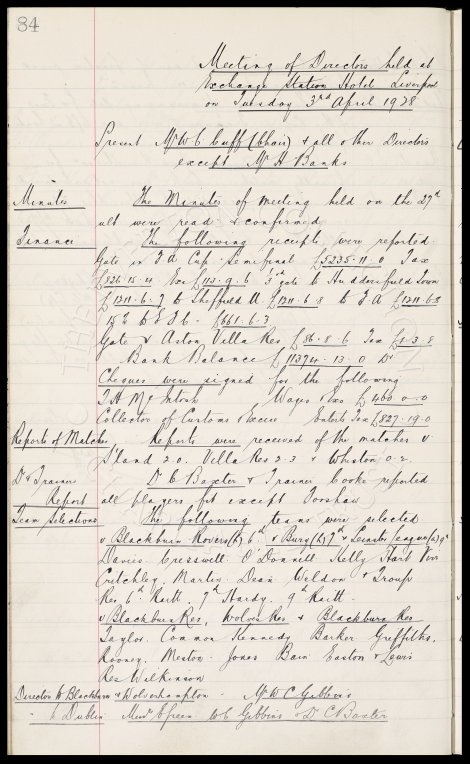 84
Meeting of Directors held at
Exchange Station Hotel Liverpool
on Tuesday 3rd April 1928
Present Mr W C Cuff (Chair) & all other Directors
except Mr H Banks
Minutes The Minutes of meeting held on the 27th
ult were read & confirmed
Finance The following receipts were reported
Gate in F A Cup Semifinal £5235.11.0 Tax
£826.15.4 Exs £113.9.6 ⅓rd gate to Huddersfield Town
£1211.6.7 to Sheffield U £1211.6.8 to F A £1211.6.8
15% to E F C - £661.6.3
Gate v Aston Villa Res £86.8.6 Tax £1.3.8
Bank Balance £11374.13.0 Dr
Cheques were signed for the following
T H McIntosh Wages Exs £460.0.0
Collector of Customs & Excise Enterts Tax £827.19.0
Reports of Matches Reports were received of the matches v
S'land 2.0. Villa Res 2.3 & Whiston 0.2.
Dr & Trainer Dr C Baxter & Trainer Cooke reported
Report all players fit except
Team Selections The following teams were selected
v Blackburn Rovers (h) 6th & Bury (h) 7th & Leinster League (a) 9th
Davies Cresswell O'Donnell Kelly Hart Virr
Critchley Martin Dean Weldon & Troup
Res 6th Raitt. 7th Hardy. 9th Raitt.
v Blackburn Res, Wolves Res & Blackburn Res
Taylor Common Kennedy Barker Griffiths.
Rooney Meston Jones Bain Easton & Lewis
Res Wilkinson
Director to Blackburn & Wolverhampton - Mr W C Gibbins
" to Dublin Messrs Green W C Gibbins & Dr C Baxter